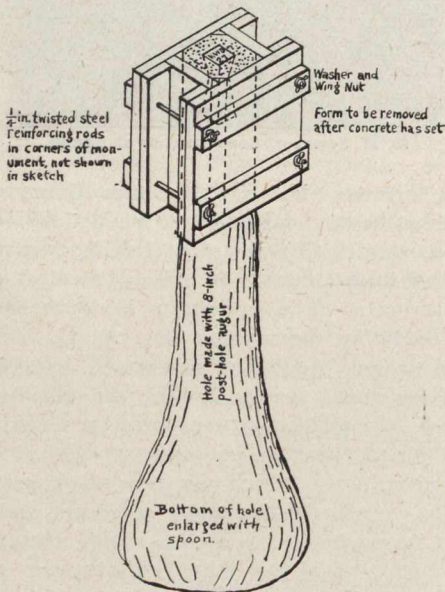 Washer and
Wing Nut
¼ in. twisted steel
reinforcing rods
in corners of mon-
ument, not shown
in sketch
Form to be removed
after concrete has set
Hole made with 8-inch
post-hole augur
Bottom of hole
enlarged with
spoon.